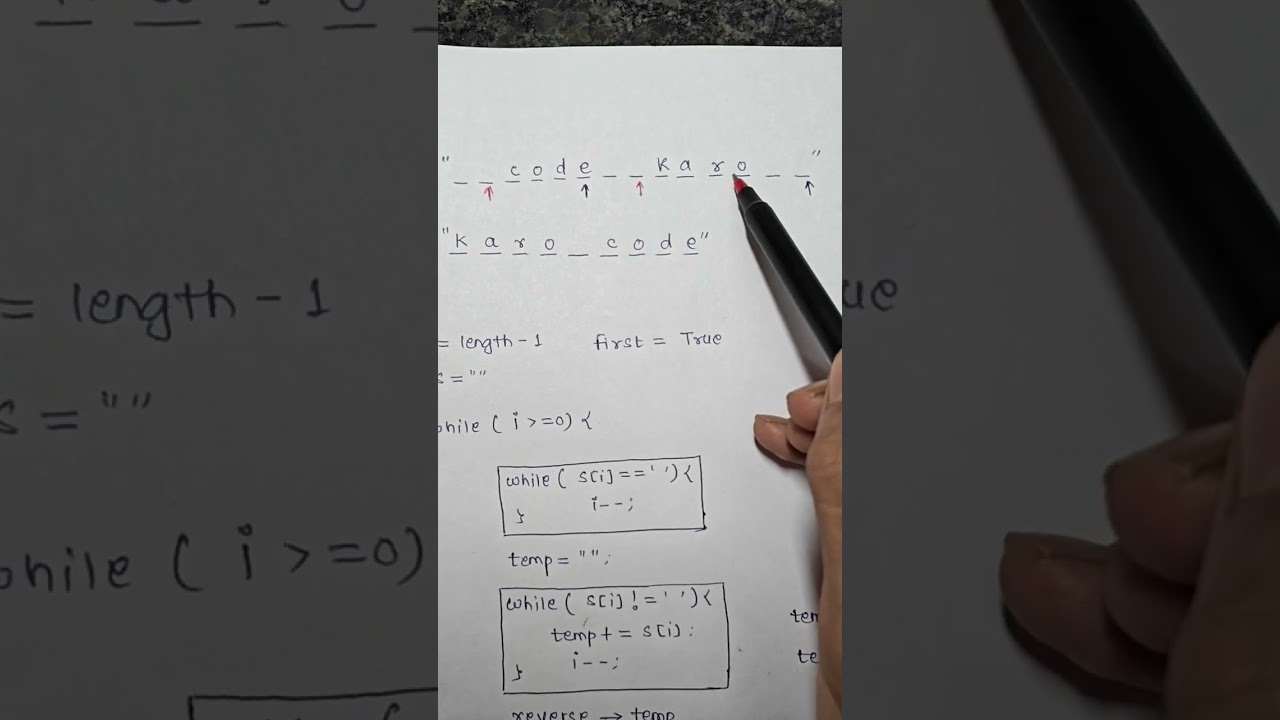 "_ _ c o d e _ _ k a r o _ _"
"k a r o _ c o d e"
= length - 1 first = True
s = ""
while ( i >=0) {
while ( s[i] ==' ') {
i--;
}
temp = "";
while ( s[i] != ' ') {
temp + = s[i];
i--;
}
reverse → temp